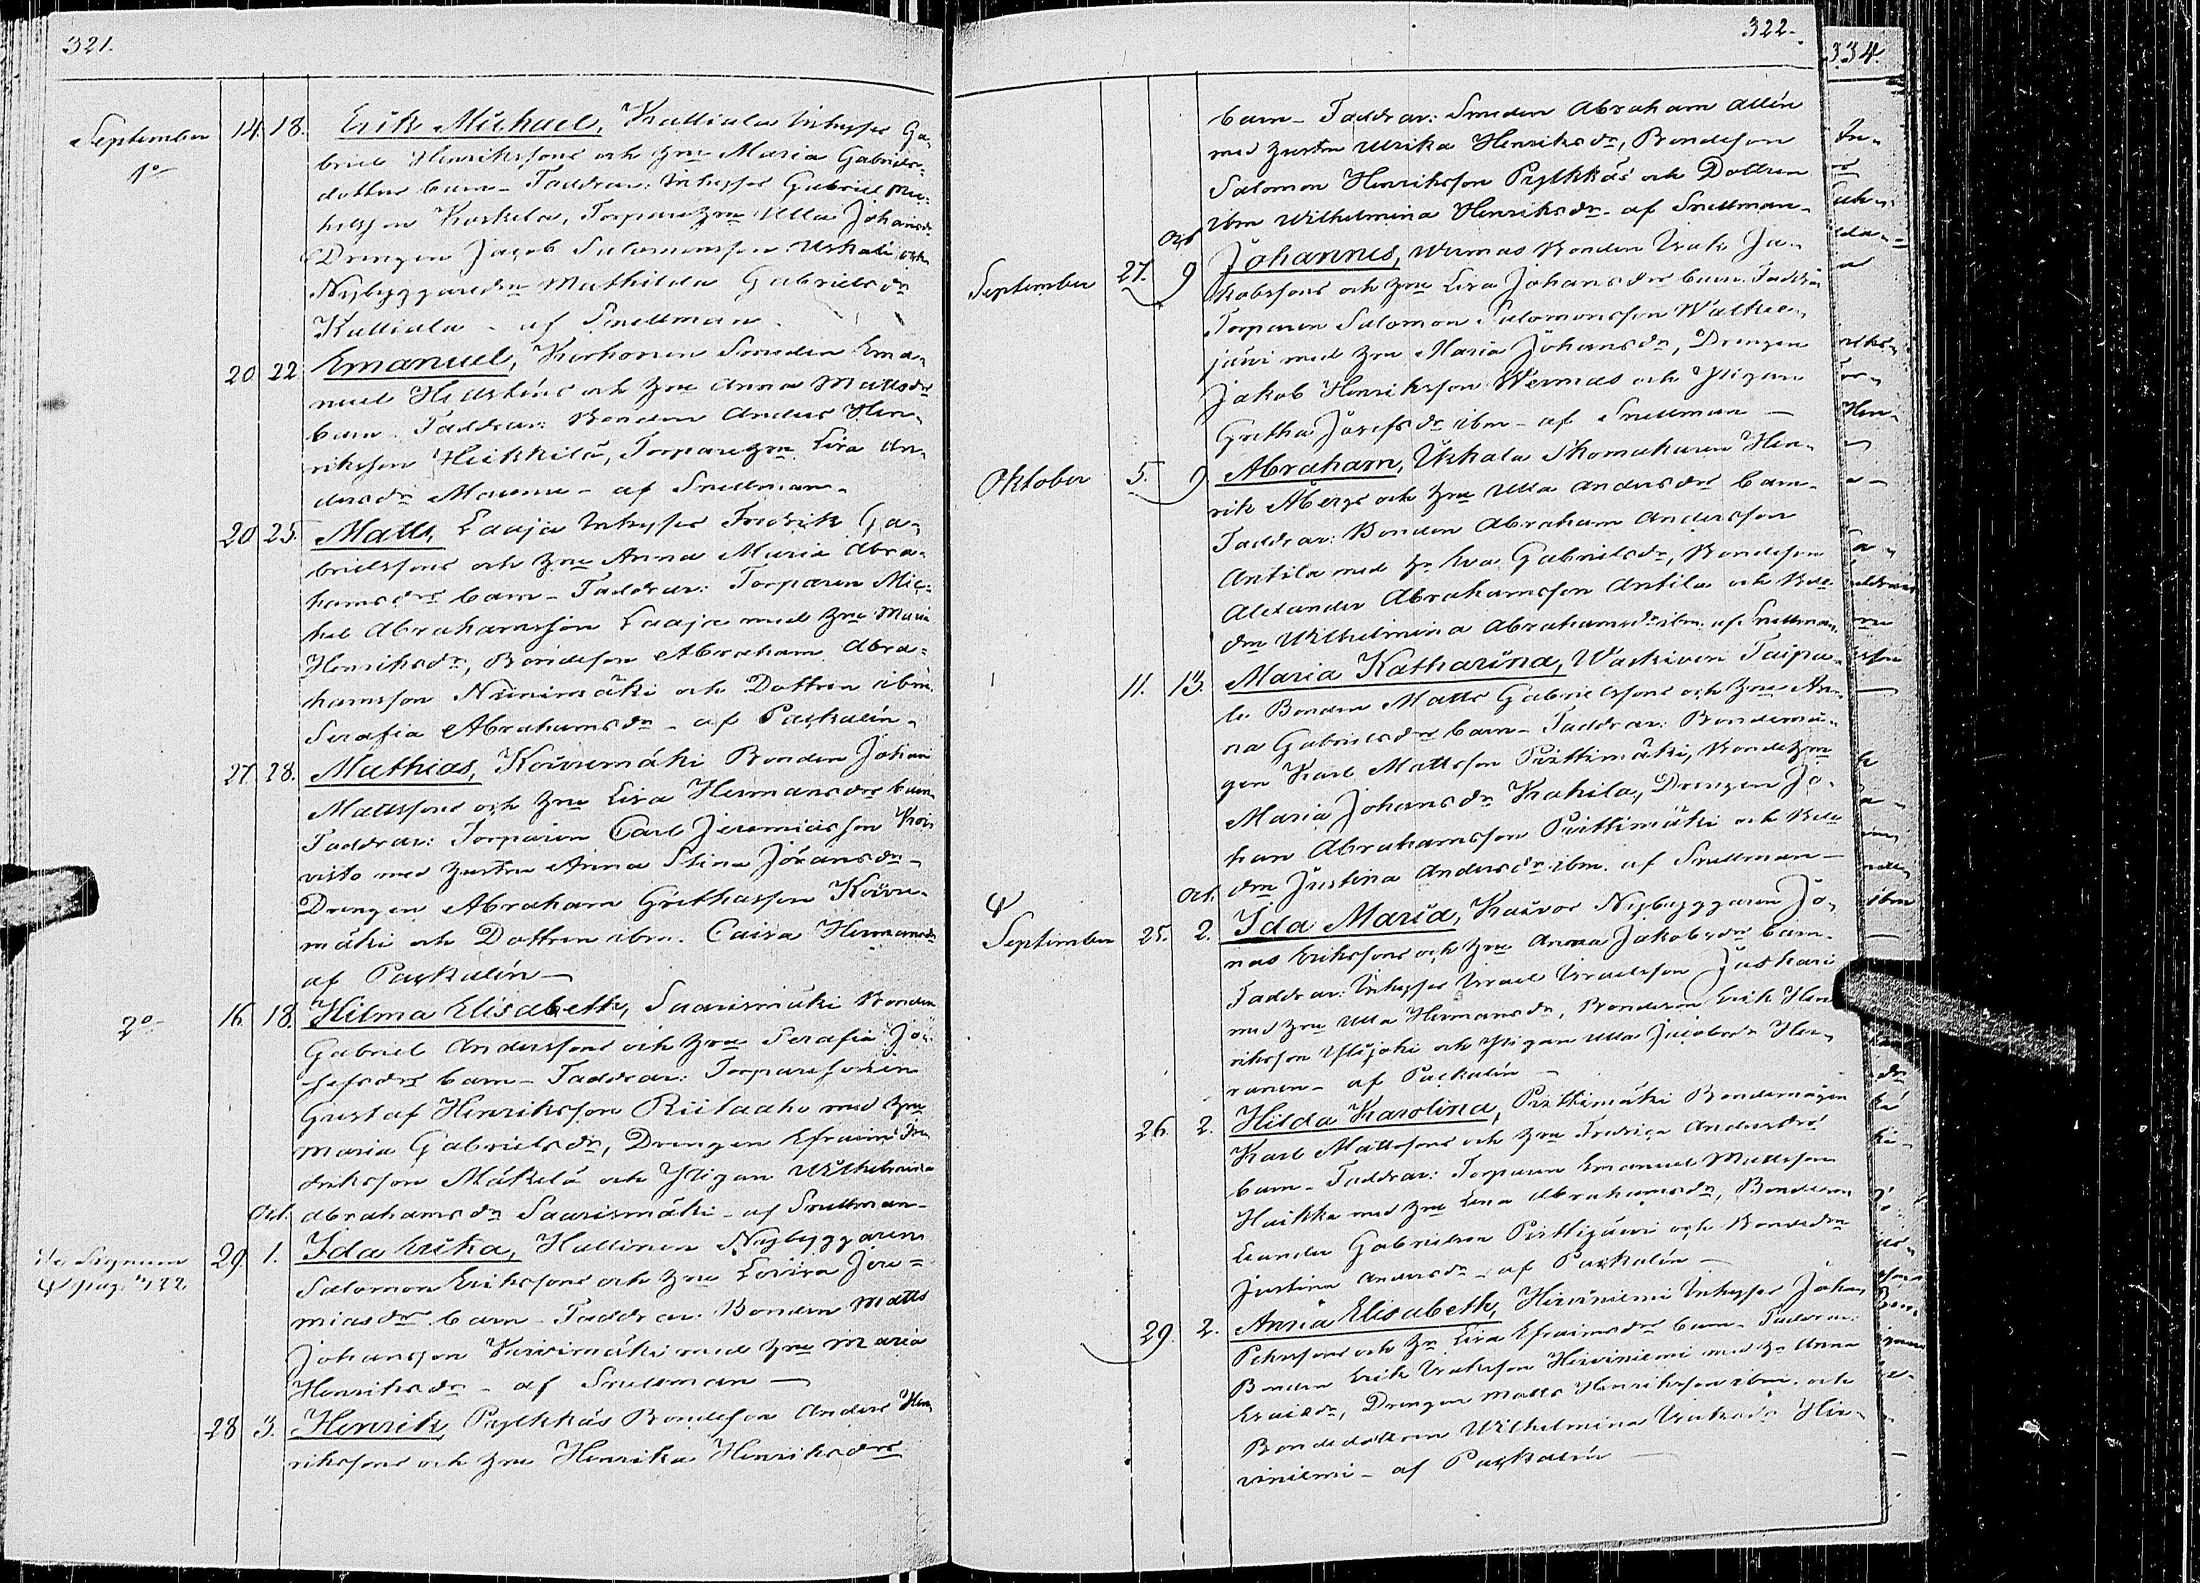 321.
September 14. 18. Erik Michael, Kalliala Inhyses Ga-
1o briel Henrikssons och hru Maria Gabriels-
dotters barn - Faddrar: Inhyses Gabriel Mic-
helsson Koskela, Torparehru Ulla Johansdr
Drengen Jacob Salomonsson Uskali och
Nybyggaredr Mathilda Gabrielsdr
Kalliala - af Snellman
20 22 Emanuel, Korhonen Smeden Ema-
nuel Hedsténs och hru Anna Mattsdrs
barn. Faddrar: Bonden Anders Hen-
riksson Heikkilä, Torparehru Lisa An-
dersdr - af Snellman -
20 25. Matts, Laaja Inhyses Fredrik Ga-
brielssons och hru Anna Maria Abra-
hamsdrs barn - Faddrar: Torparen Mic-
hel Abrahamsson Laaja med hru Maria
Henriksdr, Bondeson Abraham Abra-
hamsson Niinimäki och Dottren ibm.
Serafia Abrahamsdr - af Paskalin -
27. 28. Mathias, Koivumäki Bonden Johan
Mattssons och hru Lisa Hermansdrs barn
Faddrar: Torparen Carl Jeremiasson Koi-
visto med hustru Anna Stina Göransdr -
Drengen Abraham Grethasson Koivu-
mäki och Dottren ibm. Caisa Hermansdr
af Paskalin -
2o 16. 18. Hilma Elisabeth, Saarimäki Bonden
Gabriel Anderssons och hru Serafia Jo-
sefsdrs barn - Faddrar: Torparesonen
Gustaf Henriksson Riitaaho med hru
Maria Gabrielsdr, Drengen Efraim Fre-
driksson Mäkelä och Pigan Wilhelmina
Oct. Abrahamsdr Saarimäki - af Snellman -
29. 1. Ida Erika, Hallinen Nybyggaren
Salomon Erikssons och hru Lovisa Jere-
miasdrs barn - Faddrar: Bonden Matts
Johansson Koivimäki med hru Maria
Henriksdr - af Snellman -
28 3. Henrik Pyhkkäs Bondeson Anders Hen-
rikssons och hru Henrika Henriksdrs
322.
barn - Faddrar: Smeden Abraham Allén
med hustru Ulrika Henriksdr, Bondeson
Salomon Henriksson Pylkkäs och Dottren
ibm Wilhelmina Henriksdr - af Snellman -
Oct
September 27. 9 Johannes, Wermas Bonden Isak Ja-
kobssons och hru Lisa Johansdrs barn. Faddrar
Torparen Salomon Salomonsson Walkea-
järvi med hru Maria Johansdr, Drengen
Jakob Henriksson Wermas och Pigan
Gretha Josefsdr ibm - af Snellman -
Oktober 5. 9 Abraham, Ukkala Skomakaren Hen-
rik Åbergs och hru Ulla Andersdrs barn -
Faddrar: Bonden Abraham Andersson
Antila med hr Eva Gabrielsdr, Bondeson
Alexander Abrahamsson Antila och Bde
drn Wilhelmina Abrahamsdr ibm. af Snellman.
11. 13. Maria Katharina, Waskivori Taipa-
le Bonden Matts Gabrielssons och hru An-
na Gabrielsdrs barn - Faddrar: Bondemå-
gen Karl Mattsson Pirttimäki, Bondehru
Maria Johansdr Kakila, Drengen Jo-
han Abrahamsson Pirttimäki och Bde
drn Justina Andersdr ibm. af Snellman -
Oct.
September 25. 2. Ida Maria, Kaivos Nybyggaren Jo-
nas Erikssons och hru Anna Jakobsdrs barn -
Faddrar: Inhyses Israel Israelsson Juskari
med hru Ulla Hermansdr, Bondeson Erik Hen-
riksson Ylijoki och Pigan Ulla Jacobsdr
- af Paskalin -
26. 2. Hilda Karolina, Pirttimäki Bondemågen
Karl Mattssons och hru Fredrica Andersdrs
barn - Faddrar: Torparen Emanuel Mattsson
Huikka med hru Lena Abrahamsdr, Bondeson
Leander Gabrielson Pirttijärvi och Bondedr
Justina Andersdr - af Paskalin -
29. 2. Anna Elisabeth, Hirviniemi Inhyses Johan
Petersons och hr Lisa Efraimsdrs barn - Faddrar:
Bonden Erik Isaksson Hirviniemi med hr Anna
Ersdr, Drengen Matts Henriksson ibm. och
Bondedottren Wilhelmina Isaksdr Hir-
viniemi - af Paskalin
334.